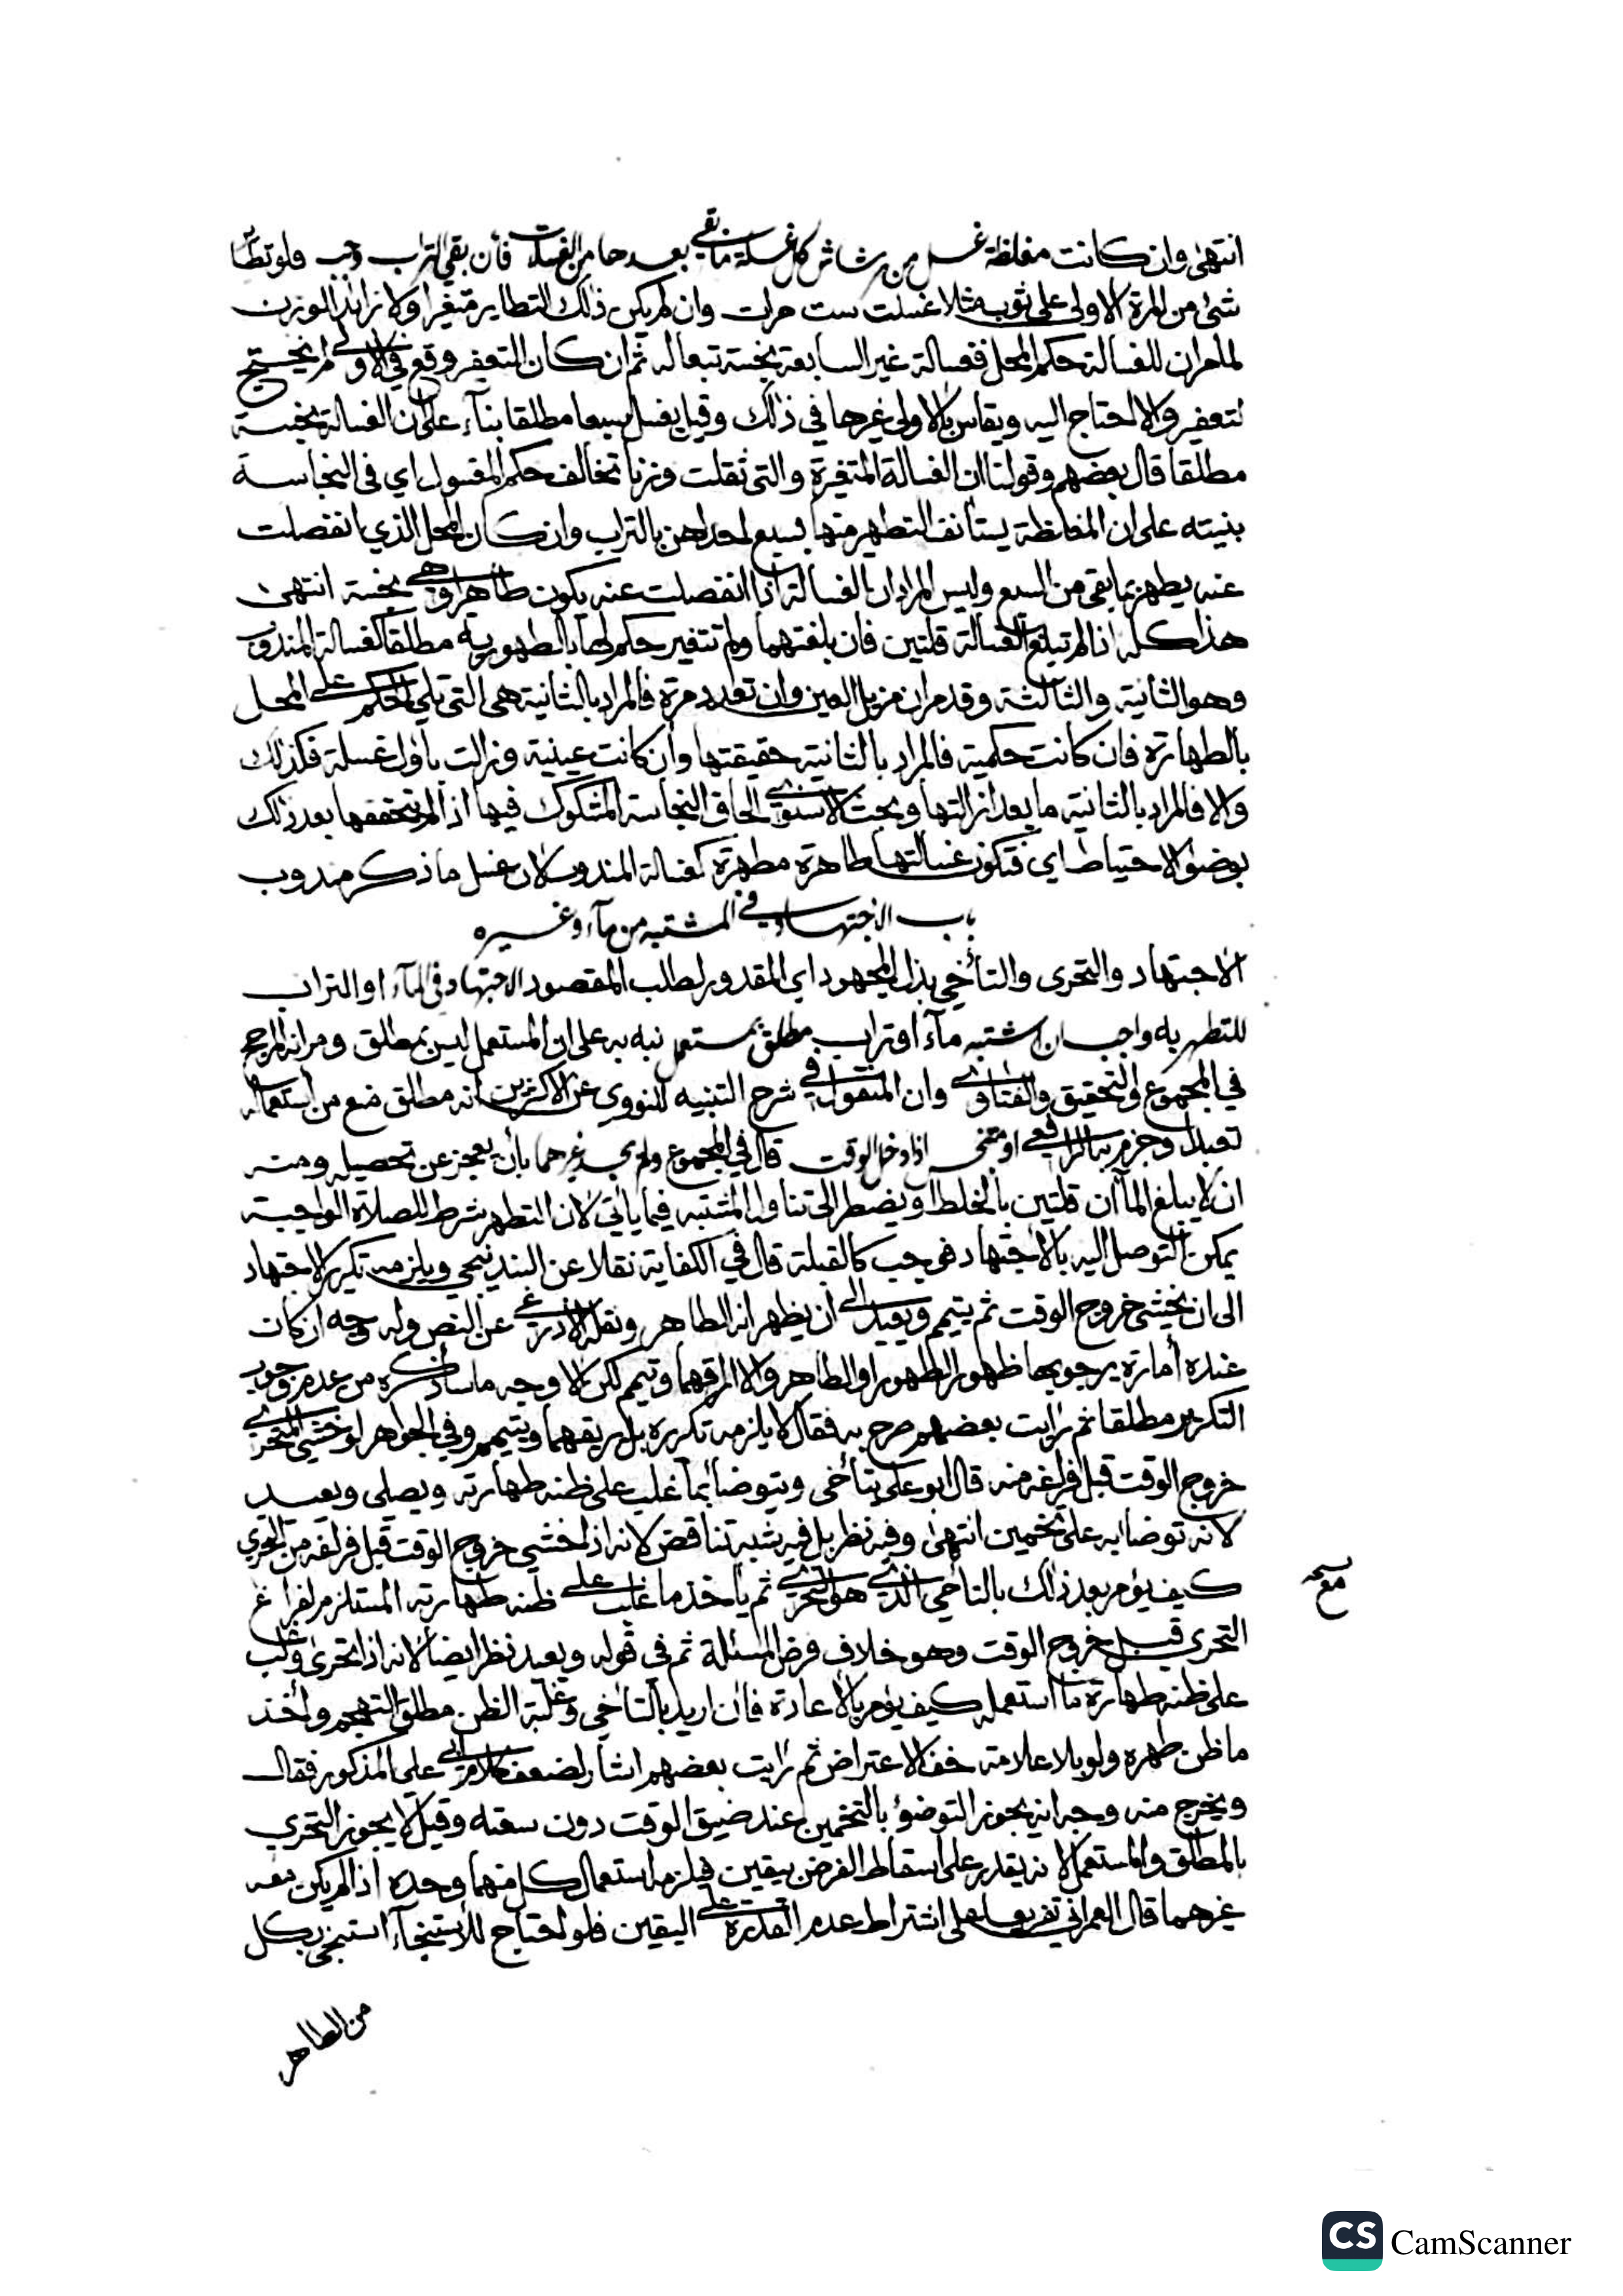 انتهى وان كانت مغلظة غسل من رشاش كل غسلة ما بقي بعدها من الغسلات فان بقي التراب وجب فلو تطاير
شئ من المرة الاولى على ثوب مثلا غسلت ست مرات وان لم يكن ذلك التطاير متغيرا ولا زائد الوزن
لما مر ان للغسالة حكم المحل فغسالة غير السابعة نجسة تبعا له ثم ان كان التعفير وقع في الاولى لم يحتج
لتعفير والا احتاج اليه ويقاس بالاولى غيرها في ذلك وقيل يغسل سبعا مطلقا بناء على ان الغسالة نجسة
مطلقا قال بعضهم وقولنا ان الغسالة المتغيرة والتي ثقلت وزنا تخالف حكم المغسول اي في النجاسة
بنيته على ان المغلظة يستأنف التطهير منها بسبع احداهن بالتراب وان كان المحل الذي انفصلت
عنه يطهر بما بقي من السبع وليس المراد ان الغسالة اذا انفصلت عنه يكون طاهرا وهي نجسة انتهى
هذا كله اذا لم تبلغ الغسالة قلتين فان بلغتهما ولم تتغير حكم لها بالطهورية مطلقا كغسالة المندوب
وهو الثانية والثالثة وقد مر ان مزيل العين وان تعدد مرة فالمراد بالثانية هي التي تلي الحكم على المحل
بالطهارة فان كانت حكمية فالمراد بالثانية حقيقتها وان كانت عينية وزالت باول غسلة فكذلك
والا فالمراد بالثانية ما بعد ازالتها وبحث الاسنوي الحاق النجاسة المشكوك فيها اذا لم تتحققها بعد ذلك
بوضوء الاحتياط اي فتكون غسالتها طاهرة مطهرة كغسالة المندوب لان غسل ما ذكر مندوب
باب الاجتهاد في المشتبه من ماء وغيره
الاجتهاد والتحري والتأخي بذل المجهود اي المقدور لطلب المقصود الاجتهاد في الماء او التراب
للتطهر به واجب ان اشتبه ماء او تراب مطلق بمستعمل نبه به على ان المستعمل ليس بمطلق ومر انه المرجح
في المجموع والتحقيق والفتاوى وان المنقول في شرح التنبيه للنووي عن الاكثرين انه مطلق منع من استعماله
تعبدا وجزم به الرافعي او متنجس اذا دخل الوقت قال في المجموع ولم يجد غيرهما بأن يعجز عن تحصيله ومنه
ان لا يبلغ الماآن قلتين بالخلط او يضطر الى تناول المشتبه فيما يأتي لان التطهر شرط للصلاة الواجبة
يمكن التوصل اليه بالاجتهاد فوجب كالقبلة قال في الكفاية نقلا عن البندنيجي ويلزمه تكرير الاجتهاد
الى ان يخشى خروج الوقت ثم يتيمم ويعيد الى ان يظهر انه الطاهر ونقله الاذرعي عن النص وله وجه ان كان
عنده أمارة يرجو بها ظهور الطهور او الطاهر والا اراقهما وتيمم لكن الاوجه ما سأذكره من عدم وجوب
التكرير مطلقا ثم رايت بعضهم صرح به فقال لا يلزمه تكرره بل يريقهما ويتيمم وفي الجواهر لو خشي المتحري
خروج الوقت قبل فراغه منه قال ابو علي يتأخى ويتوضأ بما غلب على ظنه طهارته ويصلي ويعيد
لانه توضأ به على تخمين انتهى وفيه نظر بل فيه شبه تناقض لانه اذا خشي خروج الوقت قبل فراغه من التحري
كيف يؤمر بعد ذلك بالتأخي الذي هو التحري ثم يأخذ ما غلب على ظنه طهارته المستلزم لفراغ
التحري قبل خروج الوقت وهو خلاف فرض المسئلة ثم في قوله ويعيد نظر ايضا لانه اذا تحرى وغلب
على ظنه طهارة ما استعمله كيف يؤمر بالاعادة فان اريد بالتأخي وغلبة الظن مطلق التهجم واخذ
ما ظن طهره ولو بلا علامة خف الاعتراض ثم رايت بعضهم اشار لضعف كلام ابي علي المذكور فقال
ويخرج منه وجه انه يجوز التوضؤ بالتخمين عند ضيق الوقت دون سعته وقيل لا يجوز التحري
بالمطلق والمستعمل لانه يقدر على اسقاط الفرض بيقين فيلزمه استعمال كل منهما وحده اذا لم يكن معه
غيرهما قال العمراني تفريعا على اشتراط عدم القدرة على اليقين فلو احتاج للاستنجاء استنجى بكل
من الطاهر